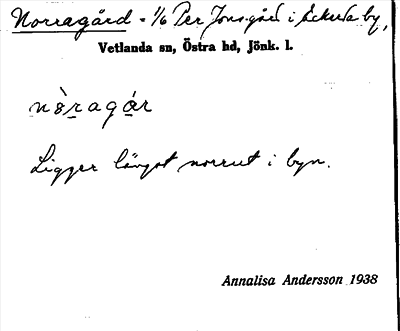 Norragård - 1/6 Per Jonsgård i Äckerda by,
Vetlanda sn, Östra hd, Jönk. l.
nòragár
Ligger längst norrut i byn.
Annalisa Andersson 1938